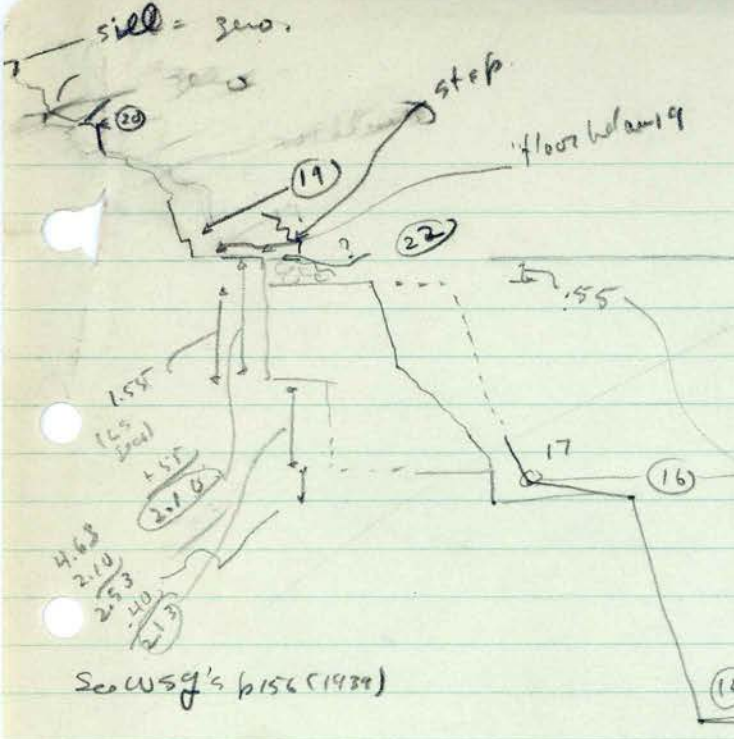 sill = zero.
20
step
19
floor below 19
?
22
.55
1.55
+.55
2.10
17
16
4.63
2.10
2.53
.40
2.13
See WSG's p156 (1939)